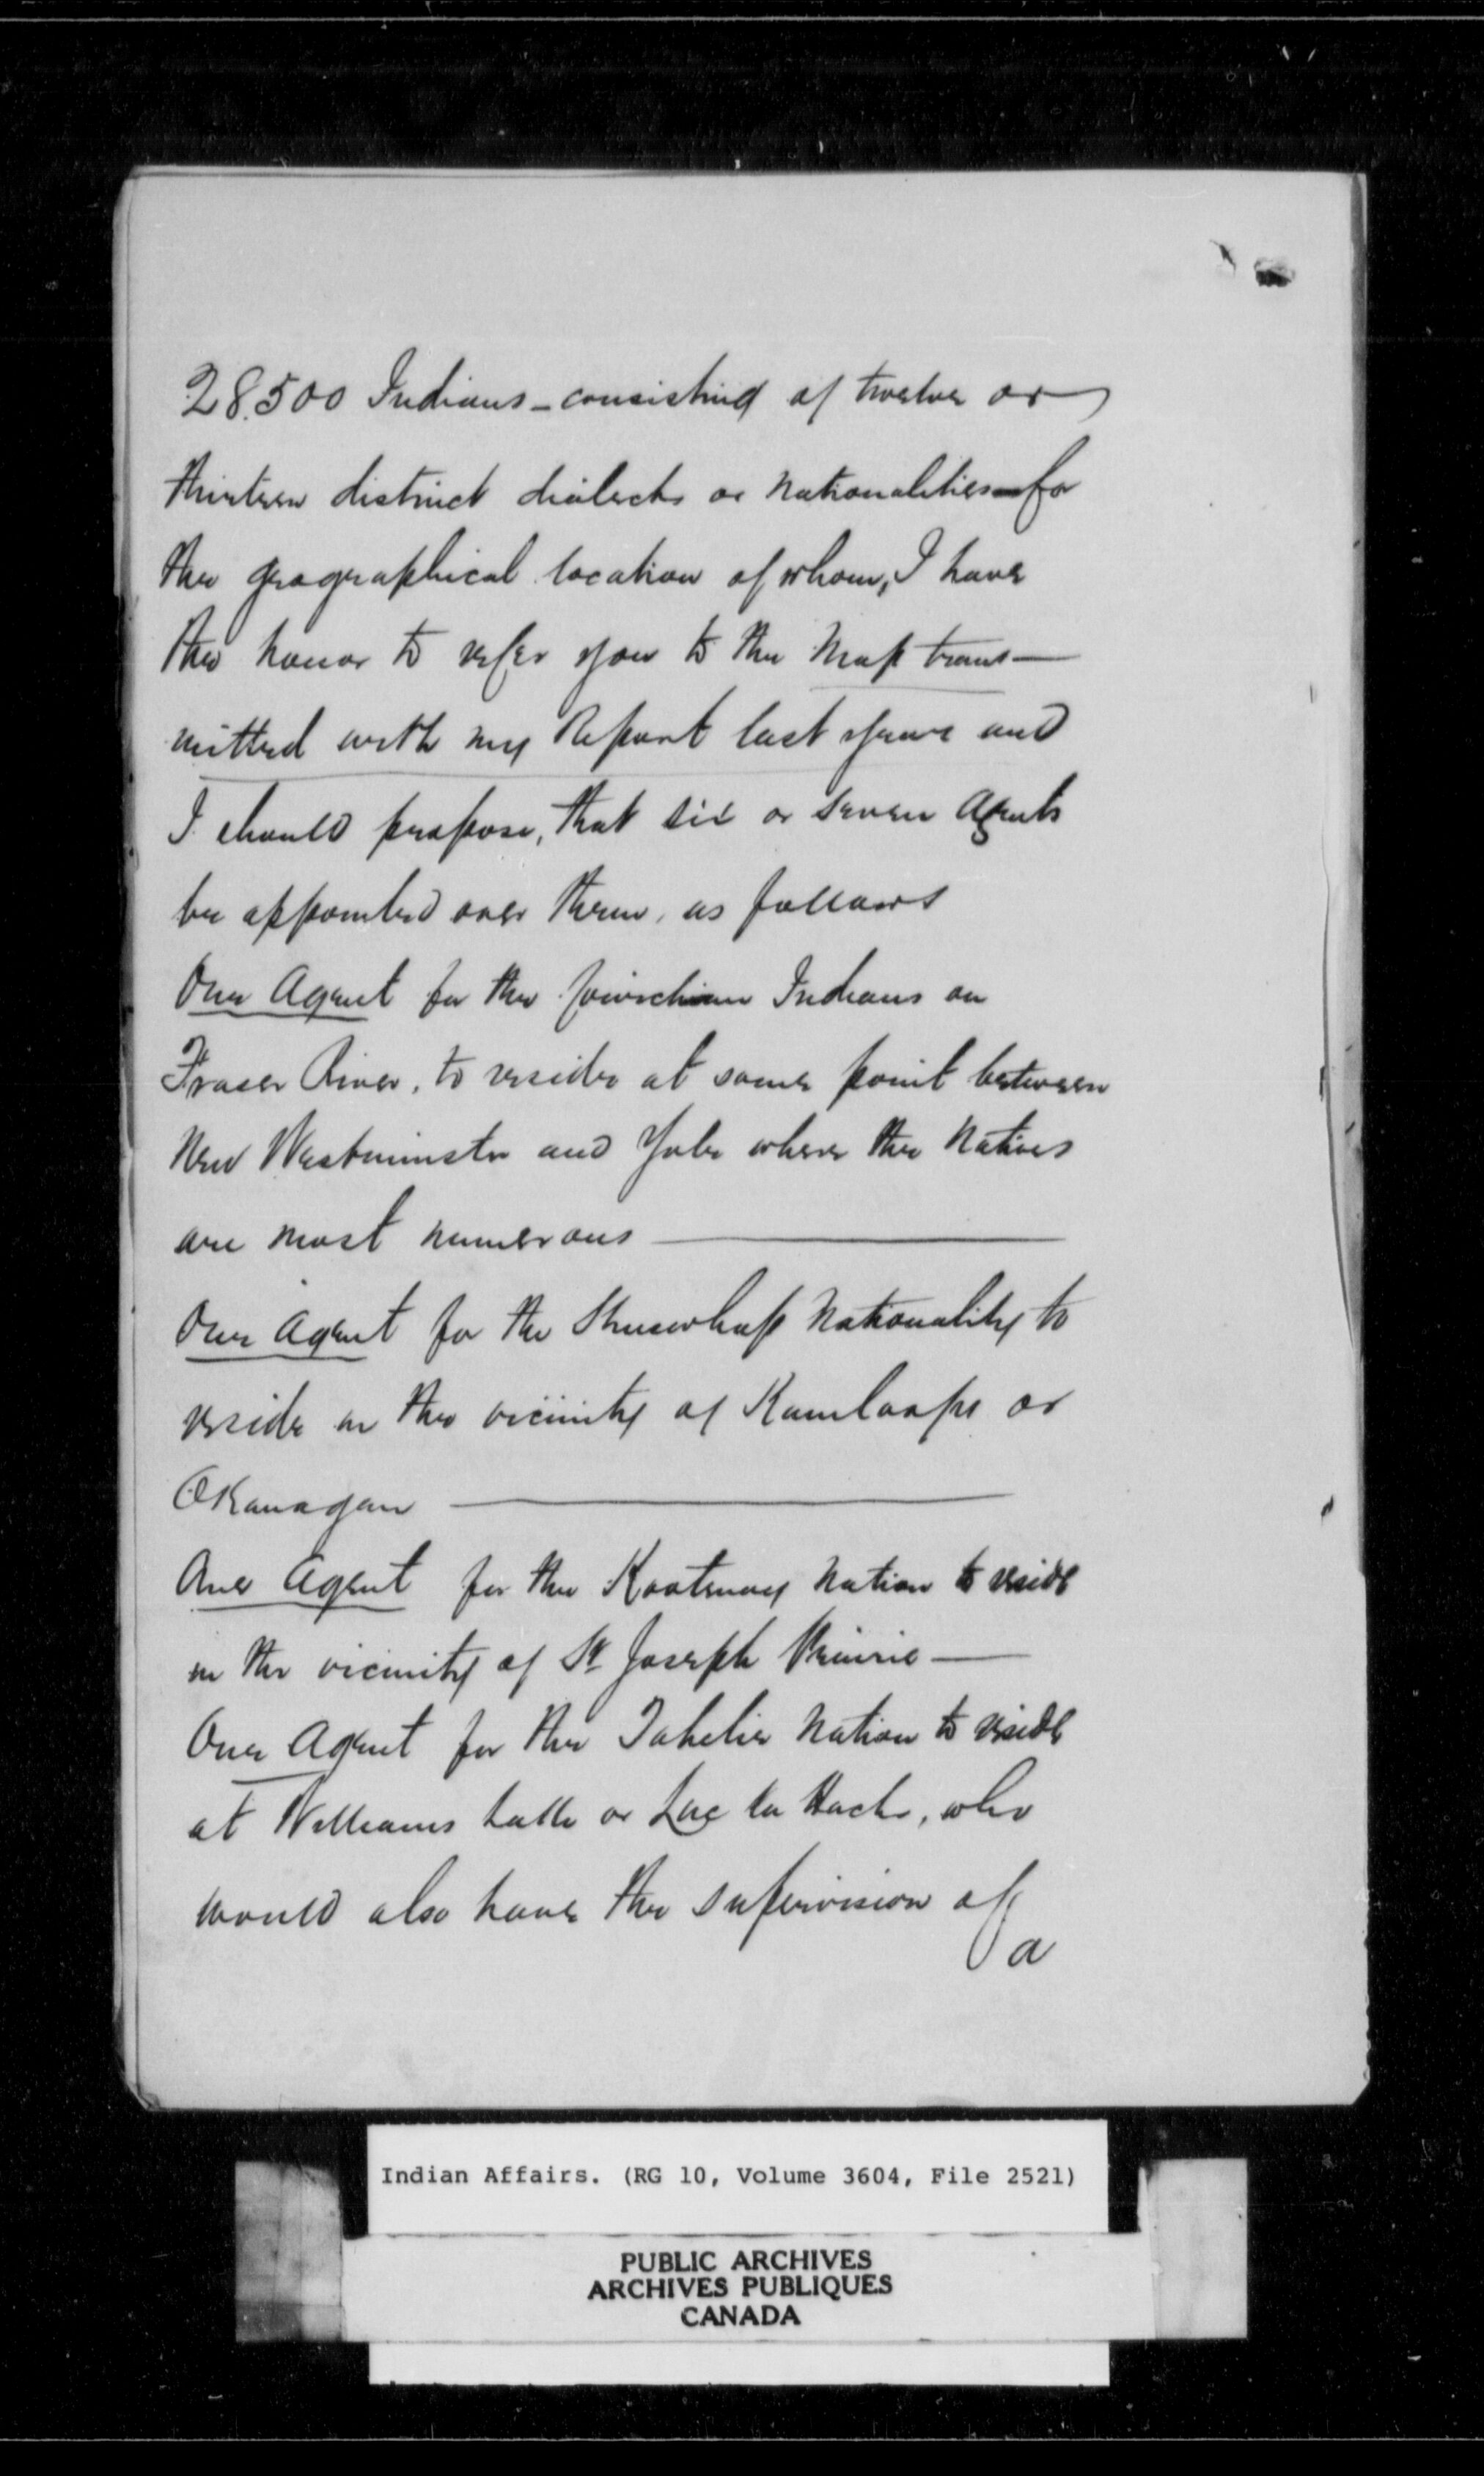 28.500 Indians - consisting of twelve or
thirteen distinct dialects or nationalities - for
the geographical location of whom, I have
the honor to refer you to the Map trans-
mitted with my Report last year and
I should propose, that six or seven Agents
be appointed over them, as follows
One Agent for the Cowichan Indians on
Fraser River, to reside at some point between
New Westminster and Yale where the Natives
are most numerous
One Agent for the Shuswhap Nationality to
reside in the vicinity of Kamloops or
Okanagan
One Agent for the Kootenay Nation to reside
in the vicinity of St Joseph Prairie -
One Agent for the Tahelie Nation to reside
at Williams Lake or Lac la Hache, who
would also have the supervision of
a
Indian Affairs. (RG 10, Volume 3604, File 2521)
PUBLIC ARCHIVES
ARCHIVES PUBLIQUES
CANADA